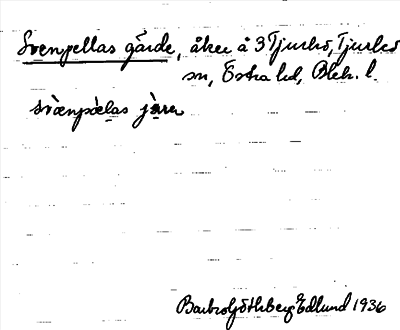 Svenpellas gärde, åker å 3 Tjurkö, Tjurkö
sn, Östra hd, Blek. l.
svænpælas jæra
Barbro Göthberg Edlund 1936